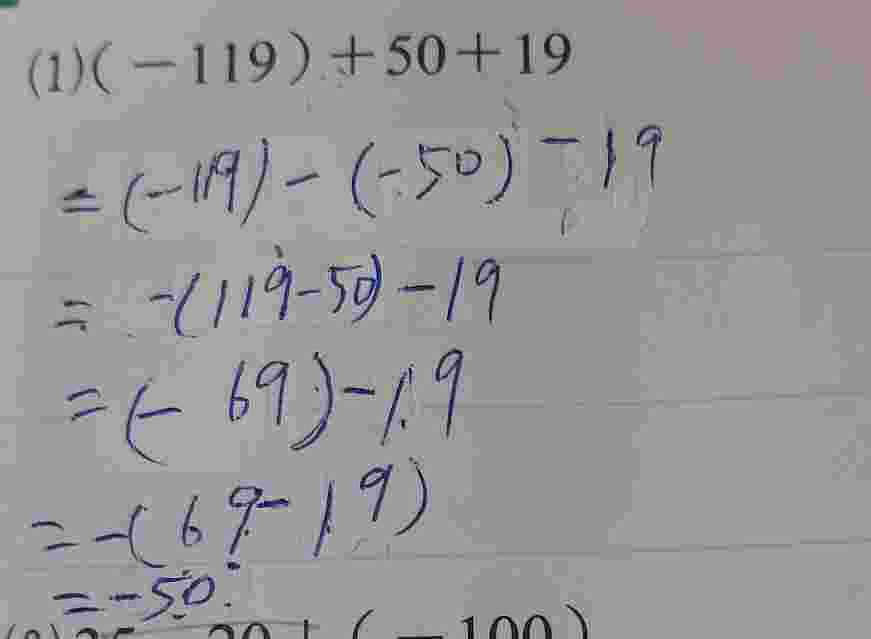 (1)(-119)+50+19
=(-119)-(-50)-19
= -(119-50)-19
=(- 69)-19
=-(69-19)
=-50.